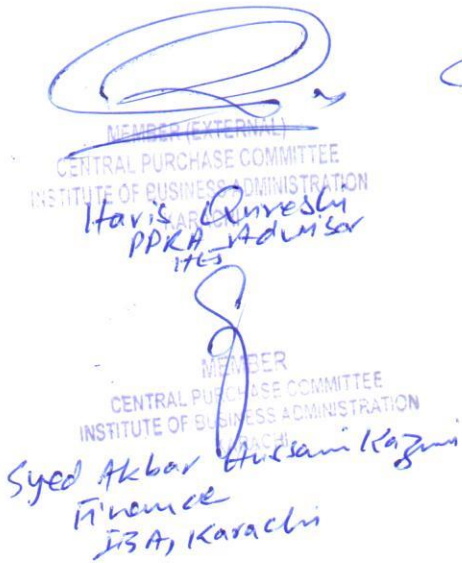 MEMBER (EXTERNAL)
CENTRAL PURCHASE COMMITTEE
INSTITUTE OF BUSINESS ADMINISTRATION
KARACHI
Haris Qureshi
PPRA Advisor
MEMBER
CENTRAL PURCHASE COMMITTEE
INSTITUTE OF BUSINESS ADMINISTRATION
KARACHI
Syed Akbar Hussain Kazmi
Finance
IBA, Karachi